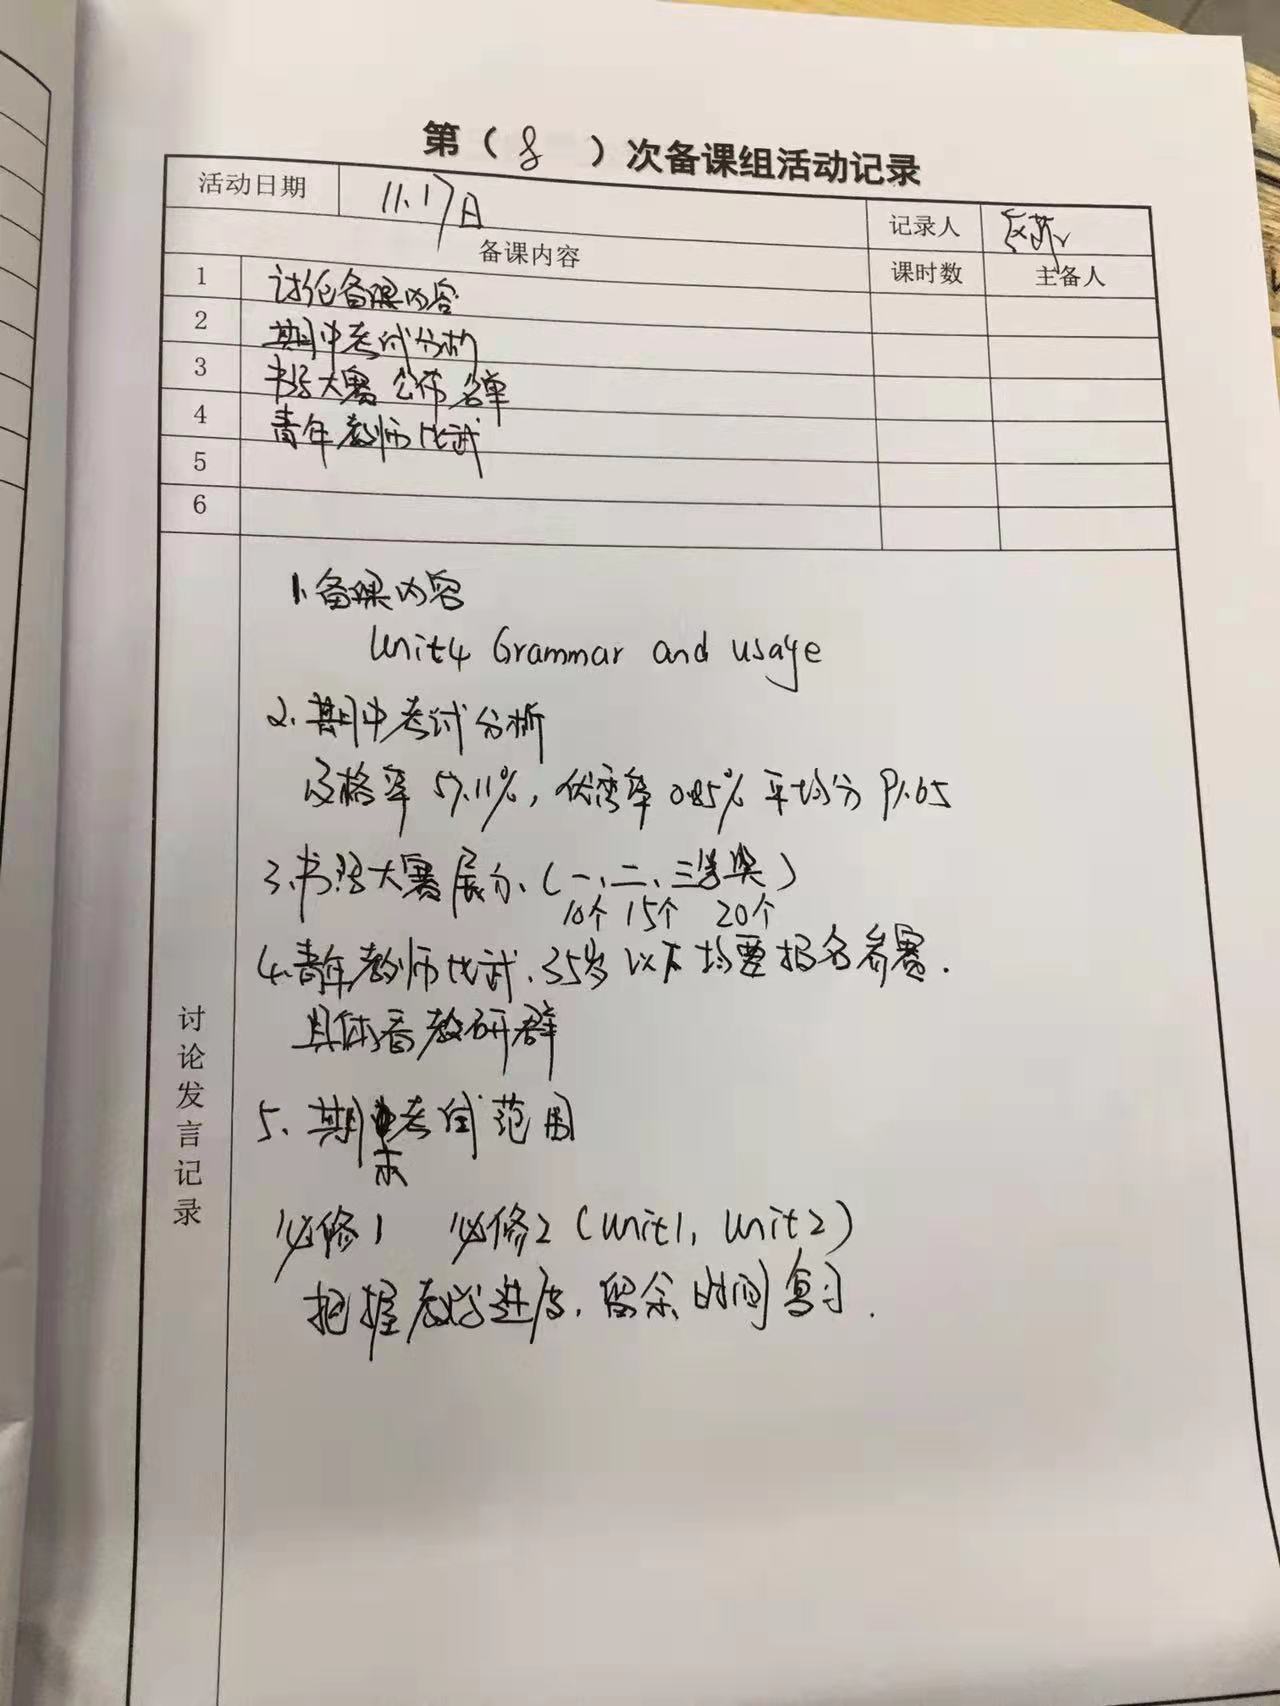 第（8）次备课组活动记录
活动日期 11.17日 记录人
备课内容 课时数 主备人
1 讨论备课内容
2 期中考试分析
3 书法大赛 公布名单
4 青年教师比武
5
6
讨论发言记录
1.备课内容
Unit4 Grammar and usage
2.期中考试分析
及格率 57.11%，优秀率 0.85% 平均分
3.书法大赛展示、（一、二、三等奖）
10个 15个 20个
4.青年教师比武.35岁以下均要报名参赛.
具体看教研群
5、期末考试范围
必修1 必修2（Unit1, Unit2）
把握教学进度，留余时间复习.